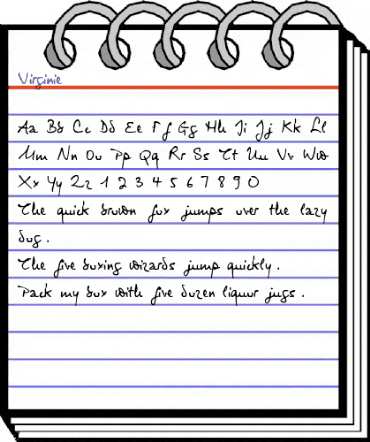 Virginie
Aa Bb Cc Dd Ee Ff Gg Hh Ii Jj Kk Ll
Mm Nn Oo Pp Qq Rr Ss Tt Uu Vv Ww
Xx Yy Zz 1 2 3 4 5 6 7 8 9 0
The quick brown fox jumps over the lazy
dog.
The five boxing wizards jump quickly.
Pack my box with five dozen liquor jugs.